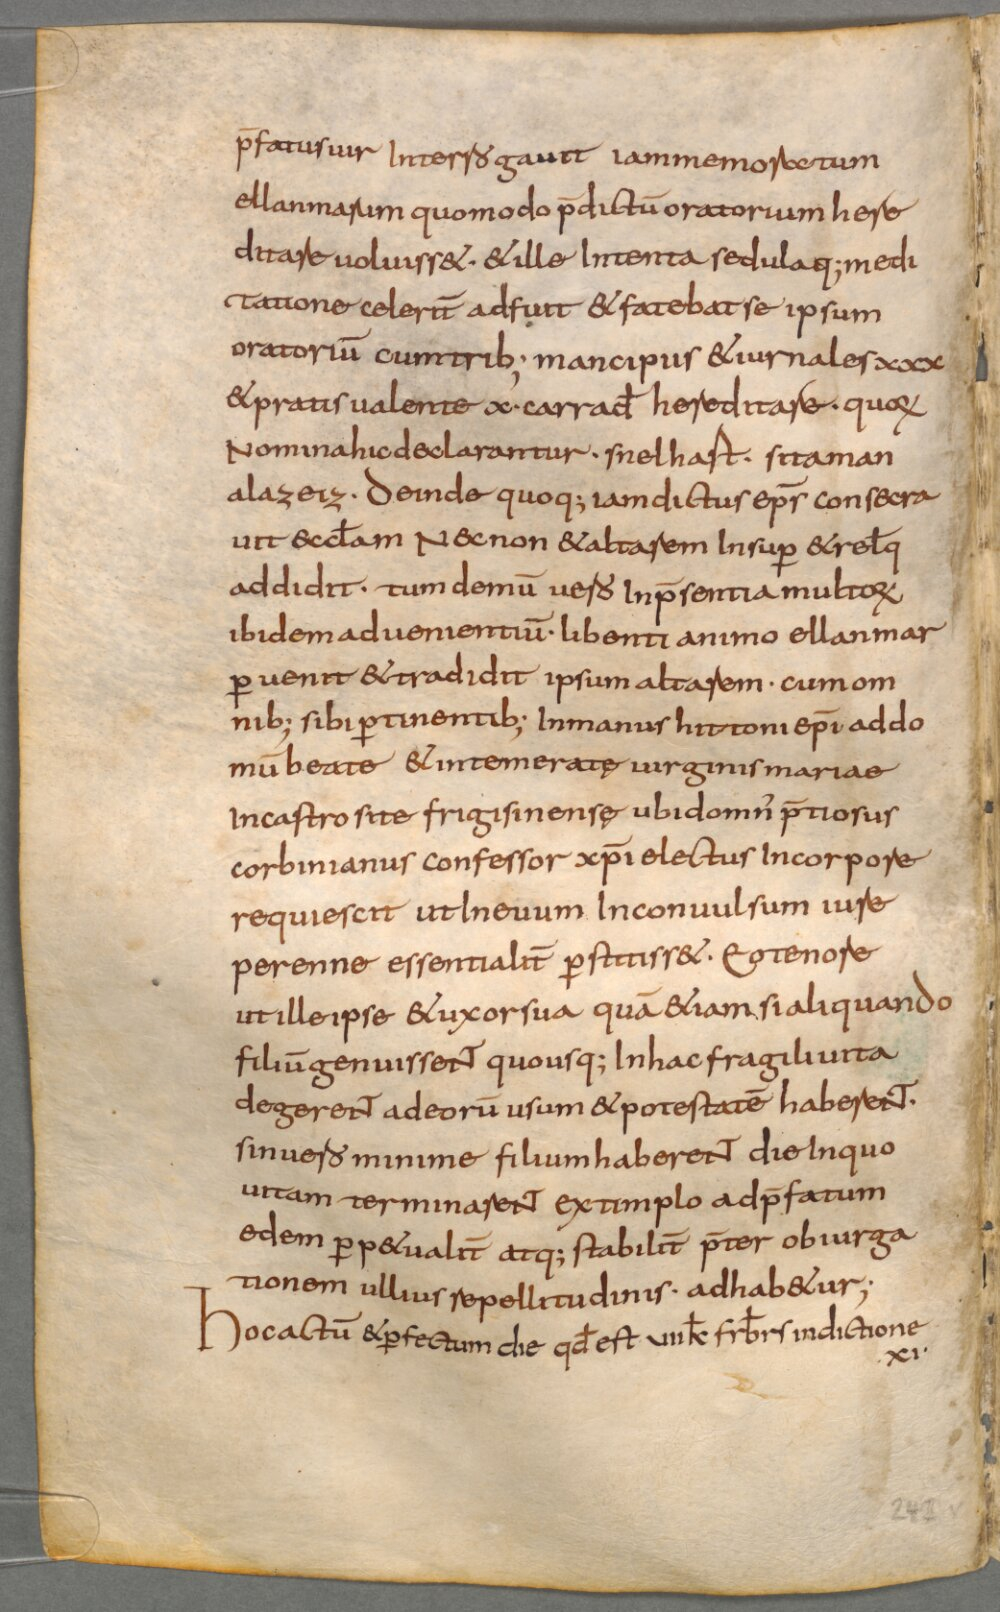 p̄fatus uir Interrogauit iam memoratum
ellanmarum quomodo p̄dictū oratorium here
ditare uoluiss&. & ille Intenta sedulaq; medi
tatione celerit̄ adfuit & fatebat se ipsum
oratoriū cum trib; mancipus & iurnales xxx
& pratis ualente x. carrad̄ hereditare. quoꝝ
Nomina hic declarantur. snelhart. sitaman
alazeiz. Deinde quoq; iamdictus ep̄s consecra
uit eccl̄am Necnon & altarem Insup̄ & rel̄q
addidit. tum demū uero Inp̄sentia multoꝝ
ibidem aduenientiū. libenti animo ellanmar
ꝑuenit & tradidit ipsum altarem. cum om
nib; sibi ꝑtinentib; Inmanus hittoni ep̄i ad do
mū beate & intemeratę uirginis mariae
Incastro site frigisinensę ubi domn̄ p̄tiosus
corbinianus confessor xp̄i electus Incorpore
requiescit ut Ineuum Inconuulsum iure
perenne essentialit̄ ꝑstitiss&. Eotenore
ut ille ipse & uxor sua quā &iam si aliquando
filiū genuissent quousq; Inhac fragili uita
degerent ad eorū usum & potestatē haberent.
sin uero minime filium haberent die Inquo
uitam terminarent extimplo ad p̄fatum
edem ꝑp&ualit̄ atq; stabilit̄ p̄ter obiurga
tionem ullius repellitudinis. adhab&ur;
hoc actū & ꝑfectum die qd̄ est uiiik̄ frb̄rs indictione
xi.
242 v